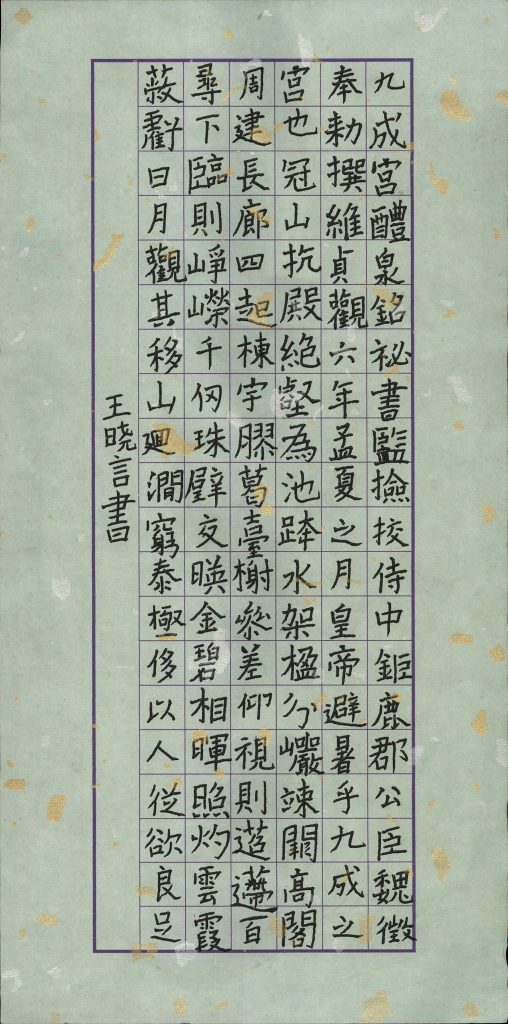 九成宮醴泉銘祕書監撿挍侍中鉅鹿郡公臣魏徵
奉勑撰維貞觀六年孟夏之月皇帝避暑乎九成之
宮也冠山抗殿絶壑為池跨水架楹分巖竦闕高閣
周建長廊四起棟宇膠葛臺榭參差仰視則迢遰百
尋下臨則崢嶸千仞珠壁交暎金碧相暉照灼雲霞
蔽虧日月觀其移山廻澗窮泰極侈以人從欲良足
王晓言書